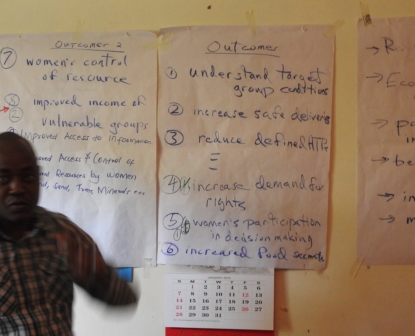 Outcomes 2
⑦ women's control
of resource
① improved income of
② vulnerable groups
Improved Access to Information
Access & Control of
Resources by women
Land, Trees, Minerals ...
Outcomes
① understand target
group conditions
② increase safe delivery
③ reduce defined HTPs
④ increase demand for
rights
⑤ women's participation
in decision making
⑥ increased food security
→ R
→ Eco
→ pa
in
→ be
→ in
→ m
S M T W T F S
1 2 3 4 5 6
7 8 9 10 11 12 13
14 15 16 17 18 19 20
21 22 23 24 25 26 27
28 29 30 31